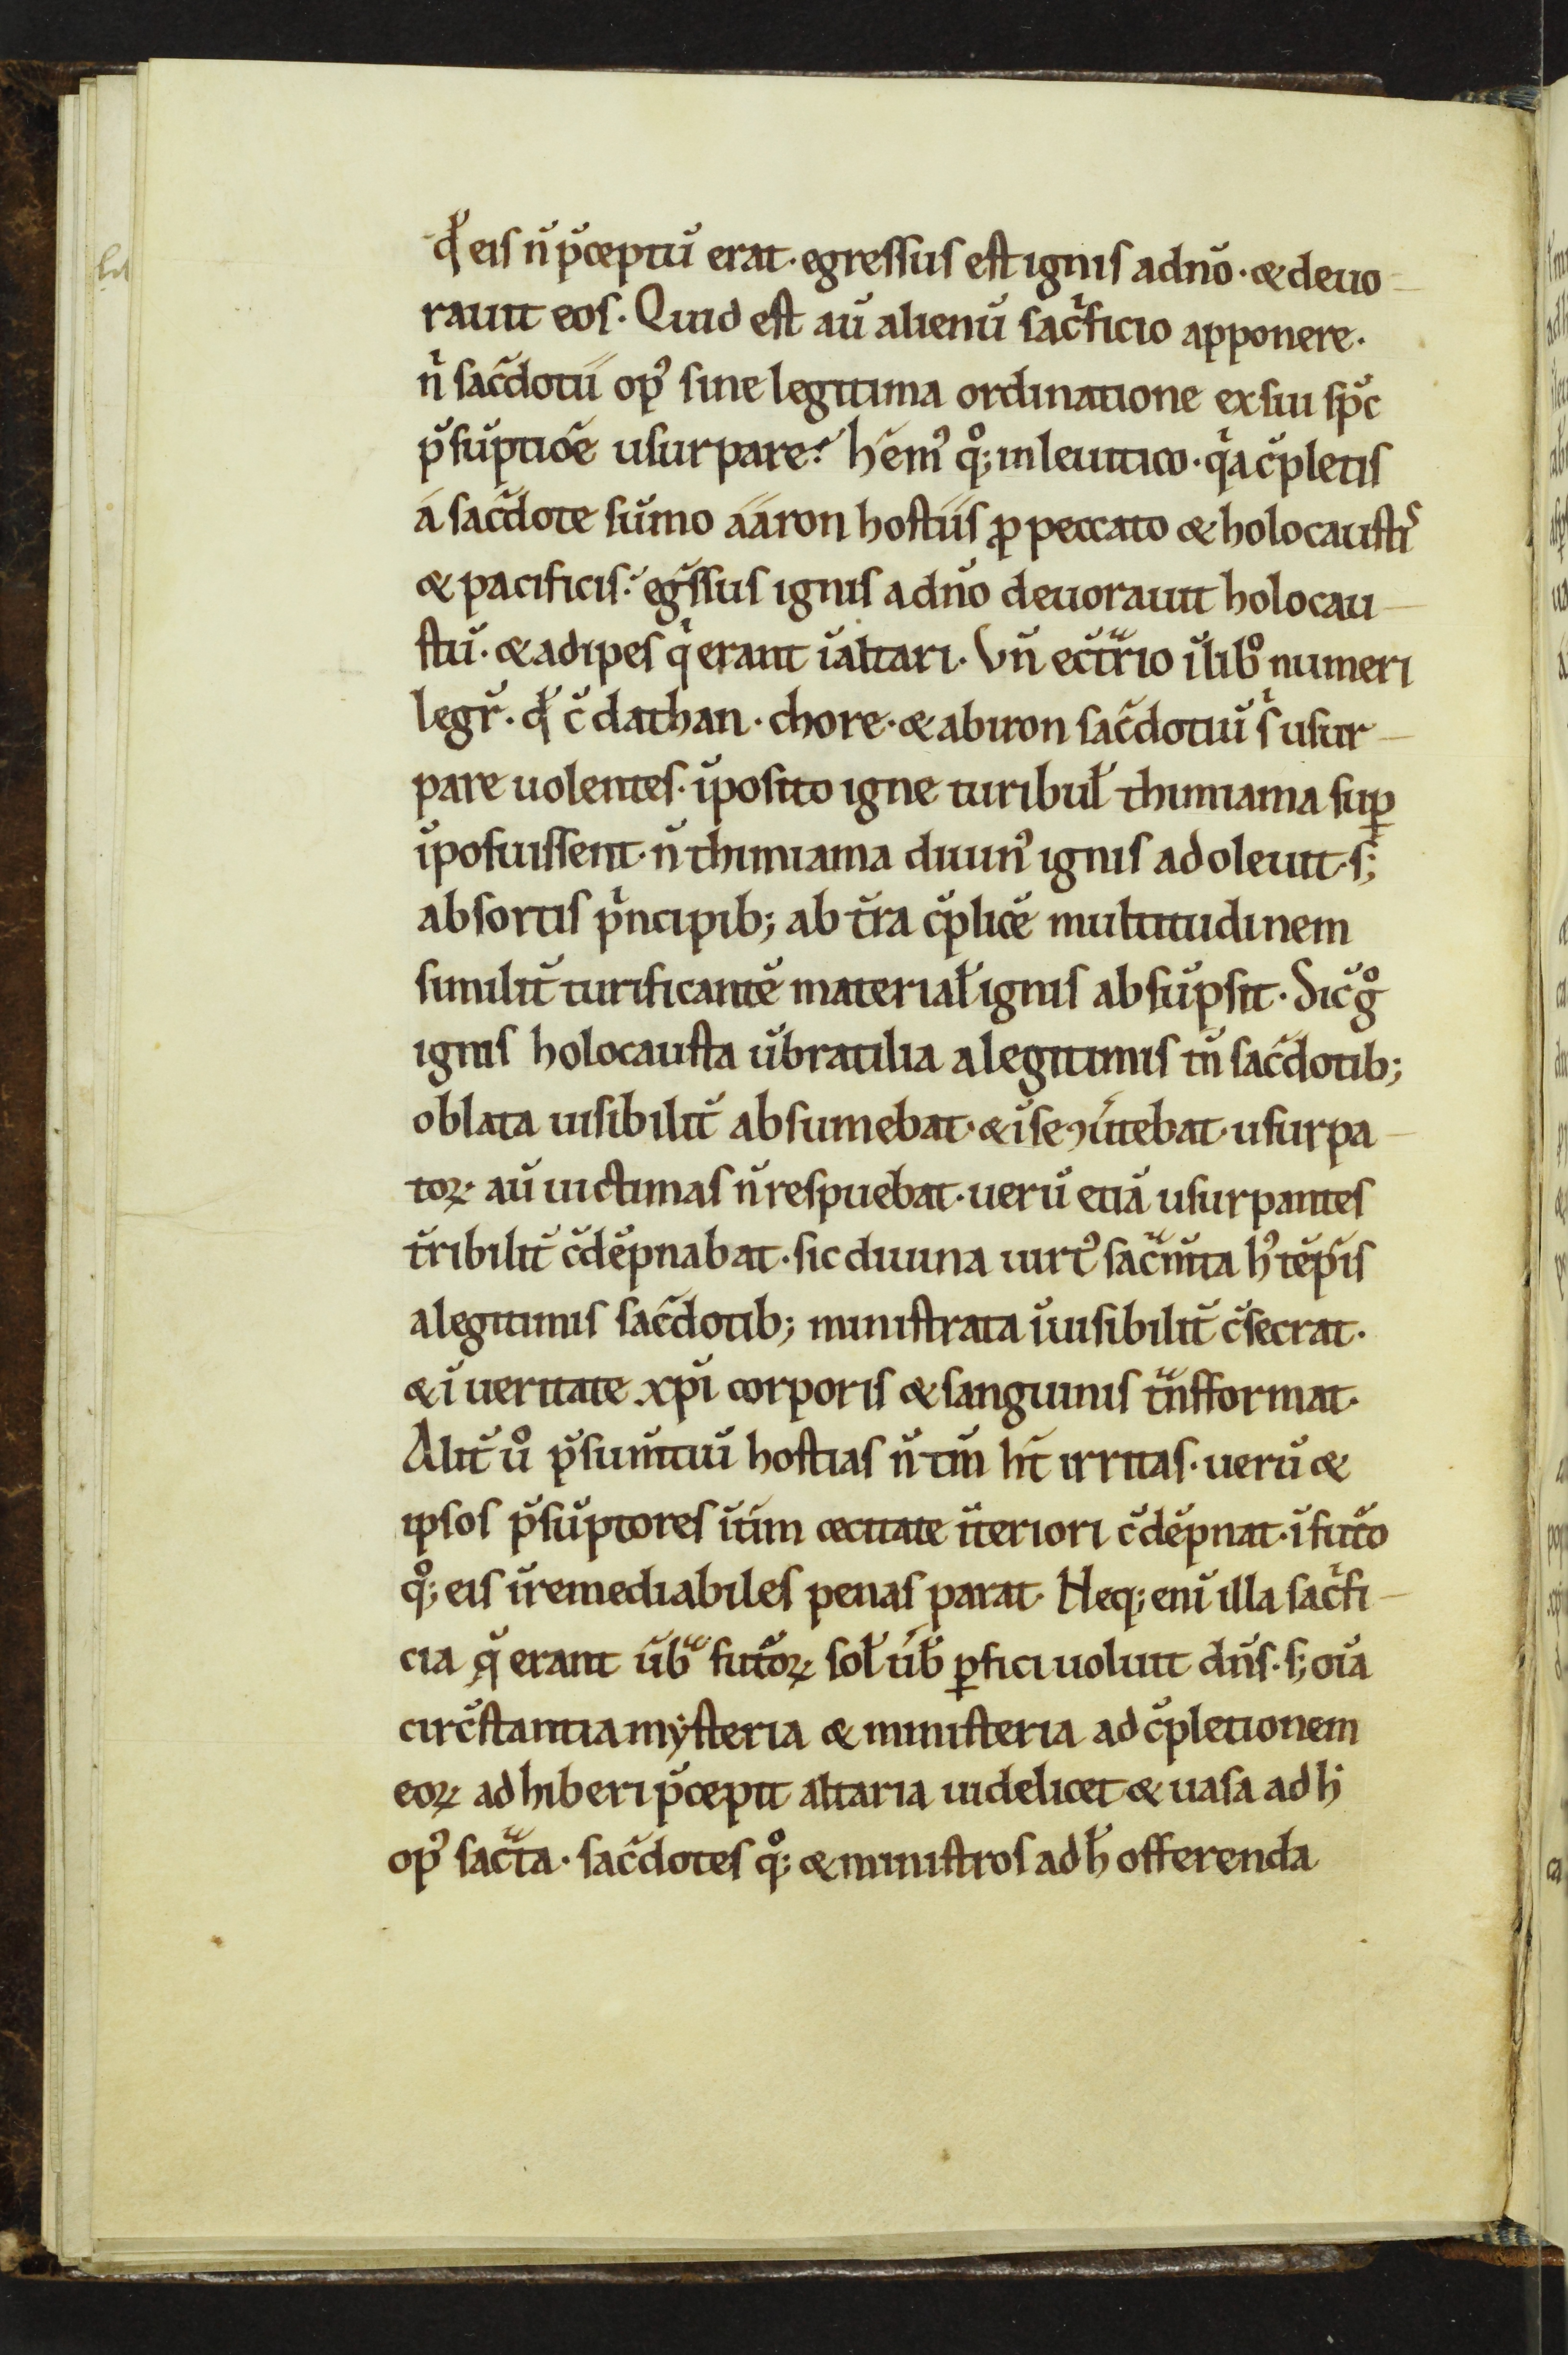 qd̆ eis n̄ p̄ceptū erat· egressus est ignis a dn̄o· & deuo-
rauit eos· Quid est aū alienū sacͥficio apponere·
nͥ sac̄dotū opꝰ sine legitima ordinatione ex sui sp̄c
p̄sūptiōe usurpare? hēmꝰ q°; in leuitico· qͥa c̄pletis
á sac̄dote sūmo ááron hostiis ꝓ peccato & holocaustiˢ
& pacificis· eḡssus ignis a dn̄o deuorauit holocau-
stū· & adipes qͥ erant ī altari· Vn̄ ec̄trͣio ī lib° numeri
legr̄· qd̆ c̄ dathan· chore· & abiron sac̄dotiū sͥ usur-
pare uolentes· īposito igne turibul̄ thimiama suꝑ
īposuissent· n̄ thimiama diuinꝰ ignis adoleuit· s;
absortis pͥncipib; ab t̄ra c̄plicē multitudinem
similit̄ turificantē material̄ ignis absūpsit· Sic̄ g°
ignis holocausta ūbratilia a legitimis tn̄ sac̄dotib;
oblata uisibilit̄ absumebat· & ī se ꝯūtebat· usurpa-
toꝝ· aū uictimas n̄ respuebat· uerū etiā usurpantes
t̄ribilit̄ c̄dēpnabat· sic diuina uirtꝰ sacͣm̄ta hꝰ tēp̄is
a legitimis sac̄dotib; ministrata īuisibilit̄ c̄secrat·
& ī ueritate xp̄i corporis & sanguinis tͣnsformat·
Alit̄ u° p̄sum̄tiū hostias n̄ tm̄ h̄t irritas· uerū &
ipsos p̄sūptores ītim cecitate īteriori c̄dēpnat· ī futō
q°; eis īremediabiles penas parat· Neq; enī illa sacͥfi-
cia q̄ erant ūbͣ futōꝝ sol̄ ūb̄ ꝑfici uoluit dn̄s· s; oīa
circ̄stantia mẏsteria & ministeria ad c̄pletionem
eoꝝ adhiberi p̄cepit altaria uidelicet & uasa ad h̄
opꝰ sacͣta· sac̄dotes q°; & ministros ad h̄ offerenda